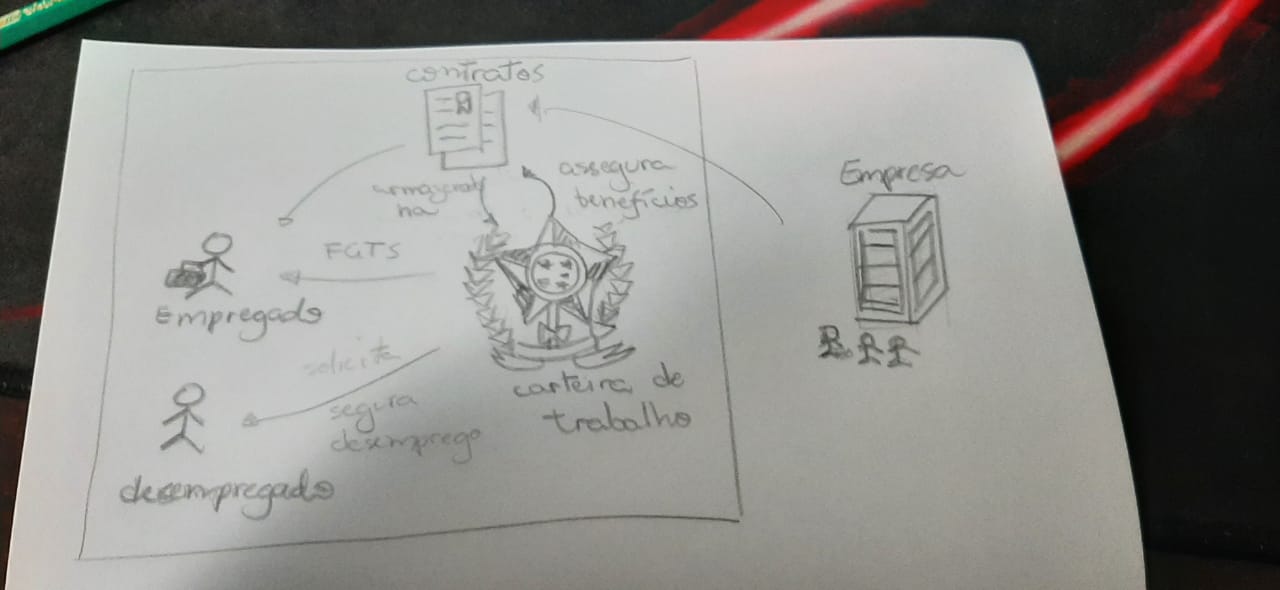 contratos
assegura
benefícios
na
Empresa
FGTS
Empregado
solicita
segura
desemprego
carteira de
trabalho
desempregado